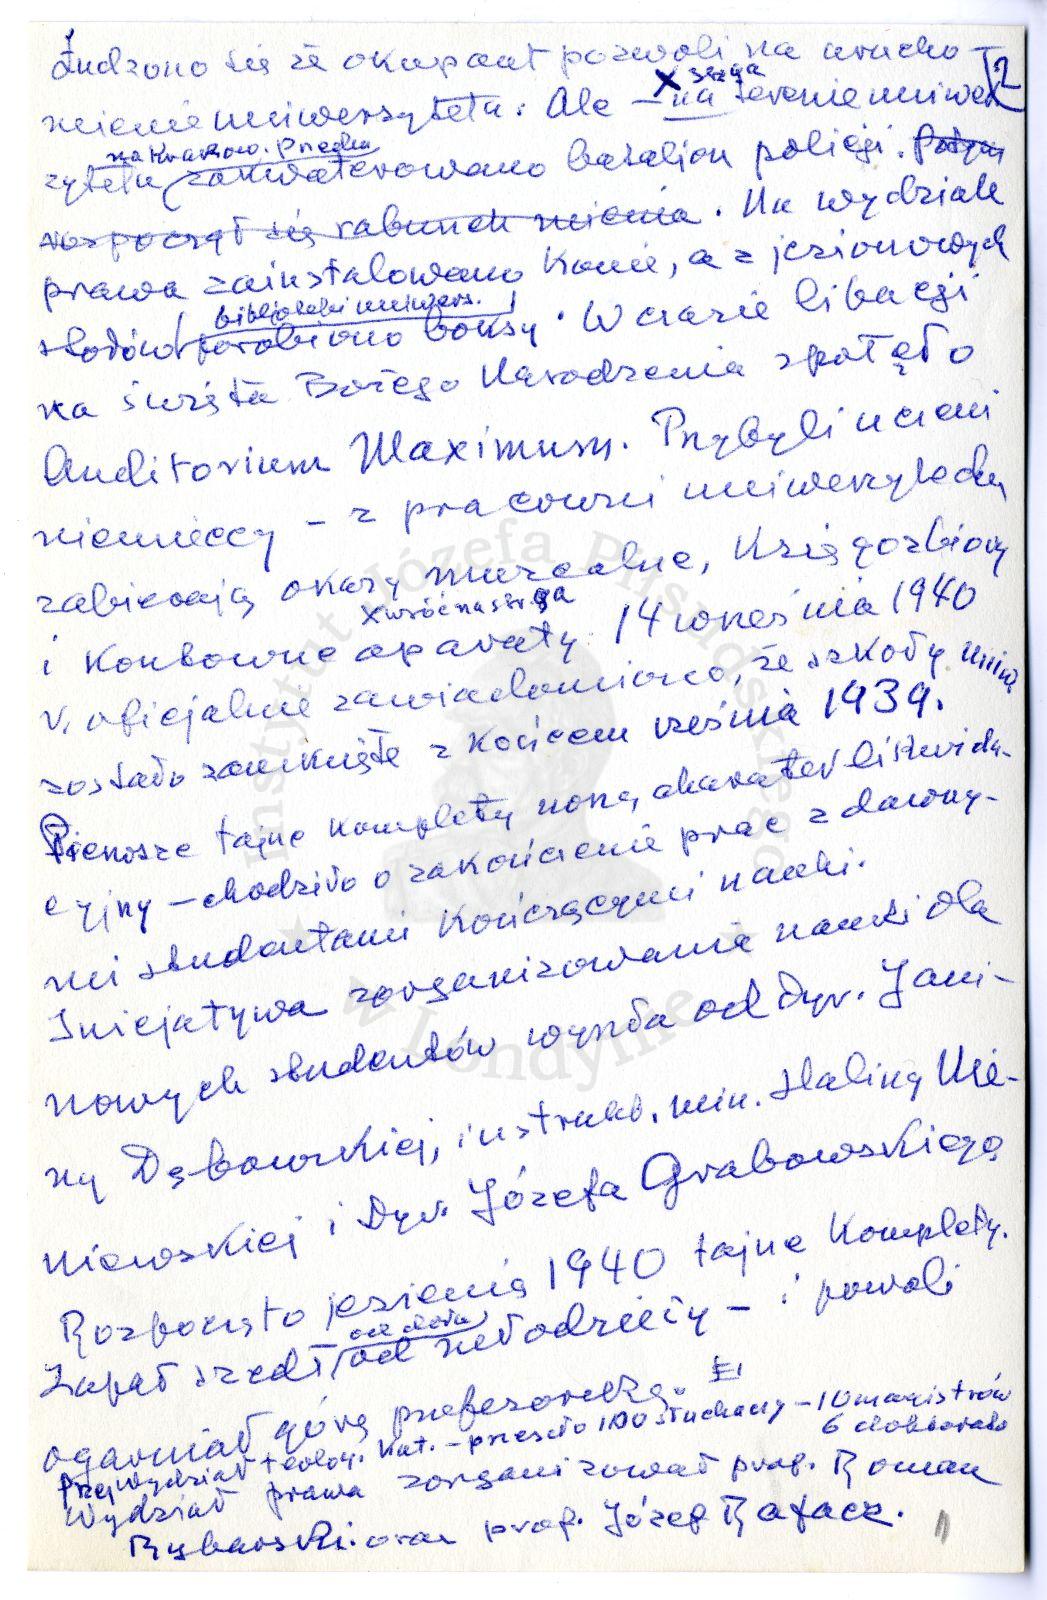 Łudzono się że okupant pozwoli na urucho-
mienie uniwersytetu. Ale – na terenie uniwer
2
zytetu zakwaterowano bataljon policji. Potym
na Krakow. Przedm.
rozpoczął się rabunek mienia. Na wydziale
prawa zainstalowano konie, a z jesionowych
stołów porobiono boksy. W czasie libacji
bibljoteki uniwers.
na święta Bożego Narodzenia spłonęło
Auditorium Maximum. Przybyli uczeni
niemieccy – z pracowni uniwersyteckich
zabierają okazy muzealne, księgozbiory
i kosztowne aparaty. 14 września 1940
x
r. oficjalnie zawiadomiono, że szkoły uniw.
zostało zamknięte z końcem wrześnía 1939.
Pierwsze tajne komplety noszą charakter likwida-
cyjny – chodziło o zakończenie prac z dawny-
mi studentami kończącymi nauki.
Inicjatywa zorganizowania nauki dla
nowych studentów wyszła od Dyr. Jani-
ny Dębowskiej, instrukt. min. Haliny Nie-
niewskiej i Dyr. Józefa Grabowskiego
Rozpoczęto jesienią 1940 tajne komplety.
Zapał szedł od młodzieży – i powoli
od dołu
ogarniał górę profesorską.
Przy wydział teolog. kat. – przeszło 100 słuchaczy – 10 magistrów
6 doktorató
Wydział prawa zorganizował prof. Roman
Rybarski oraz prof. Józef Rafacz.
Instytut Józefa Piłsudskiego
w Londynie